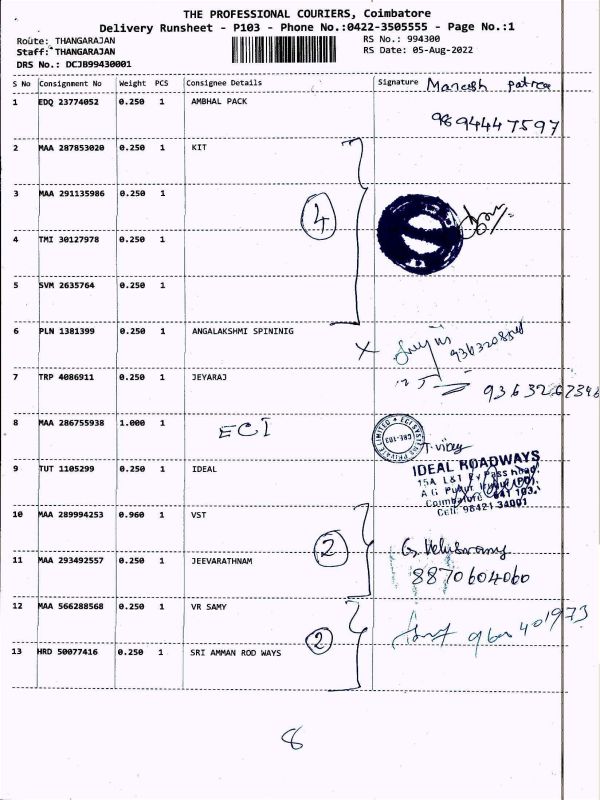 THE PROFESSIONAL COURIERS, Coimbatore
Delivery Runsheet - P103 - Phone No.:0422-3505555 - Page No.:1
Route: THANGARAJAN
RS No.: 994300
Staff: THANGARAJAN
RS Date: 05-Aug-2022
DRS No.: DCJB99430001
S No Consignment No Weight PCS Consignee Details Signature Manash Patra
1 EDQ 23774052 0.250 1 AMBHAL PACK
9894447597
2 MAA 287853020 0.250 1 KIT
3 MAA 291135986 0.250 1
4
4 TMI 30127978 0.250 1
5 SVM 2635764 0.250 1
6 PLN 1381399 0.250 1 ANGALAKSHMI SPININIG
X
7 TRP 4086911 0.250 1 JEYARAJ
8 MAA 286755938 1.000 1 ECI
ECI SYSTEMS PRIVATE LIMITED
CBE-103
T. vijay
9 TUT 1105299 0.250 1 IDEAL
IDEAL ROADWAYS
15A L&T By pass Road
Coimbatore 641 103.
Cell: 98421 34001
10 MAA 289994253 0.960 1 VST
2
11 MAA 293492557 0.250 1 JEEVARATHNAM
8870604060
12 MAA 566288568 0.250 1 VR SAMY
2
13 HRD 50077416 0.250 1 SRI AMMAN ROD WAYS
8